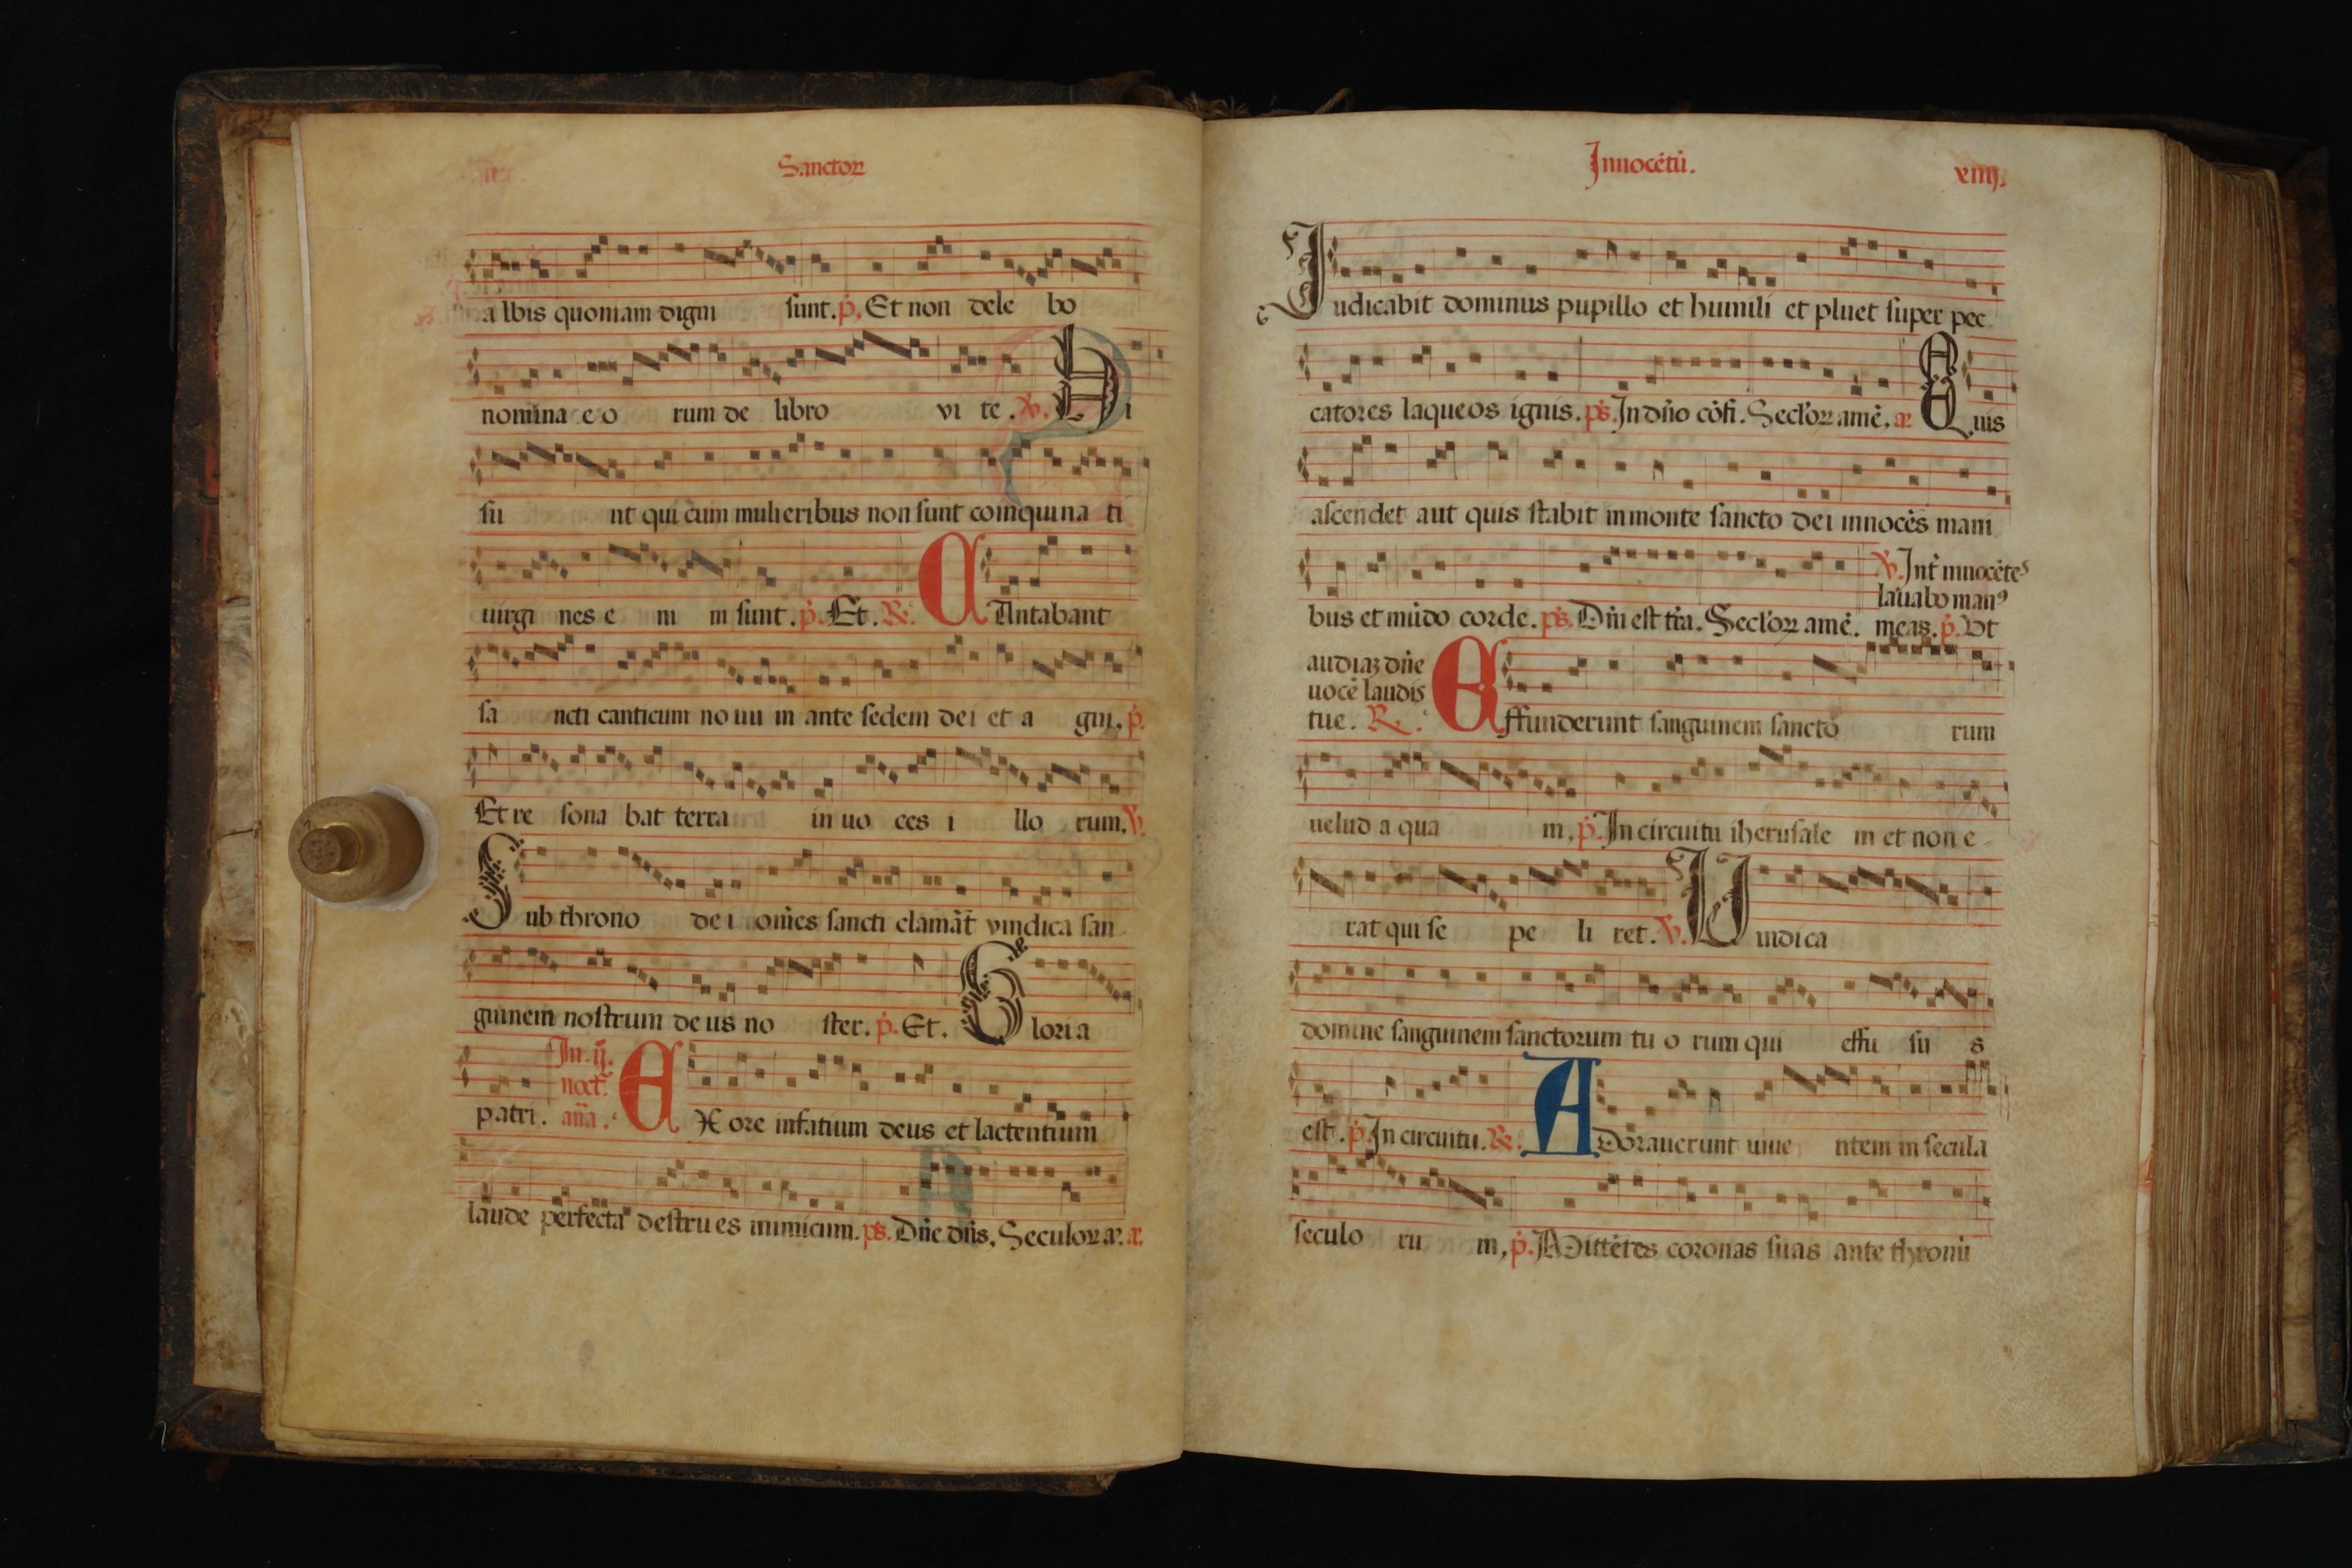 Sanctoꝝ
albis quoniam digni sunt. p̄. Et non dele bo
nomina eo rum de libro vi te. ℣. Hi
su nt qui cum mulieribus non sunt coinquina ti
uirgi nes e ni m sunt. p̄. Et. ℟. CAntabant
sa ncti canticum nouu m ante sedem dei et a gni. p̄.
Et re sona bat terra in uo ces i llo rum. ℣.
Sub throno de i om̄es sancti clamāt vindica san
guinem nostrum deus no ster. p̄. Et. Gloria
patri.
In .ij.
noct̄.
añа.
EX ore infātium deus et lactentium
laude perfecta destrues inimicum. ps̄. Dn̄e dn̄s. Seculoꝝ a. a.
Innocētū. xiiij.
Iudicabit dominus pupillo et humili et pluet super pec
catores laqueos ignis. ps̄. In dn̄o cōfi. Secl'oꝝ amē. a. Quis
ascendet aut quis stabit in monte sancto dei innocēs mani
bus et mūdo corde. ps̄. Dn̄i est tr̄a. Secl'oꝝ amē.
℣. Int̄ innocētes
lauabo manꝰ
meas. p̄. Vt
audiaꝫ dn̄e
uocē laudis
tue. ℟.
Effunderunt sanguinem sancto rum
uelud a qua m. p̄. In circuitu iherusale m et non e-
rat qui se pe li ret. ℣. Uindica
domine sanguinem sanctorum tu o rum qui effu su s
est. p̄. In circuitu. ℟. ADorauerunt uiue ntem in secula
seculo ru m. p̄. Mittētes coronas suas ante thronū